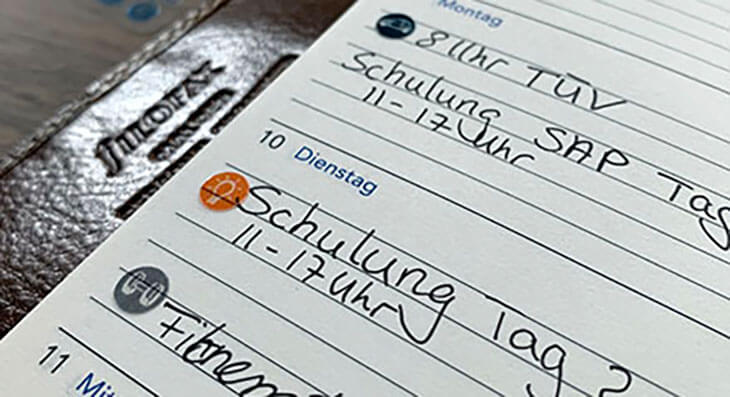 filofax
Montag
8 Uhr TÜV
Schulung SAP Tag
11-17 Uhr
10 Dienstag
Schulung Tag 2
11-17 Uhr
11